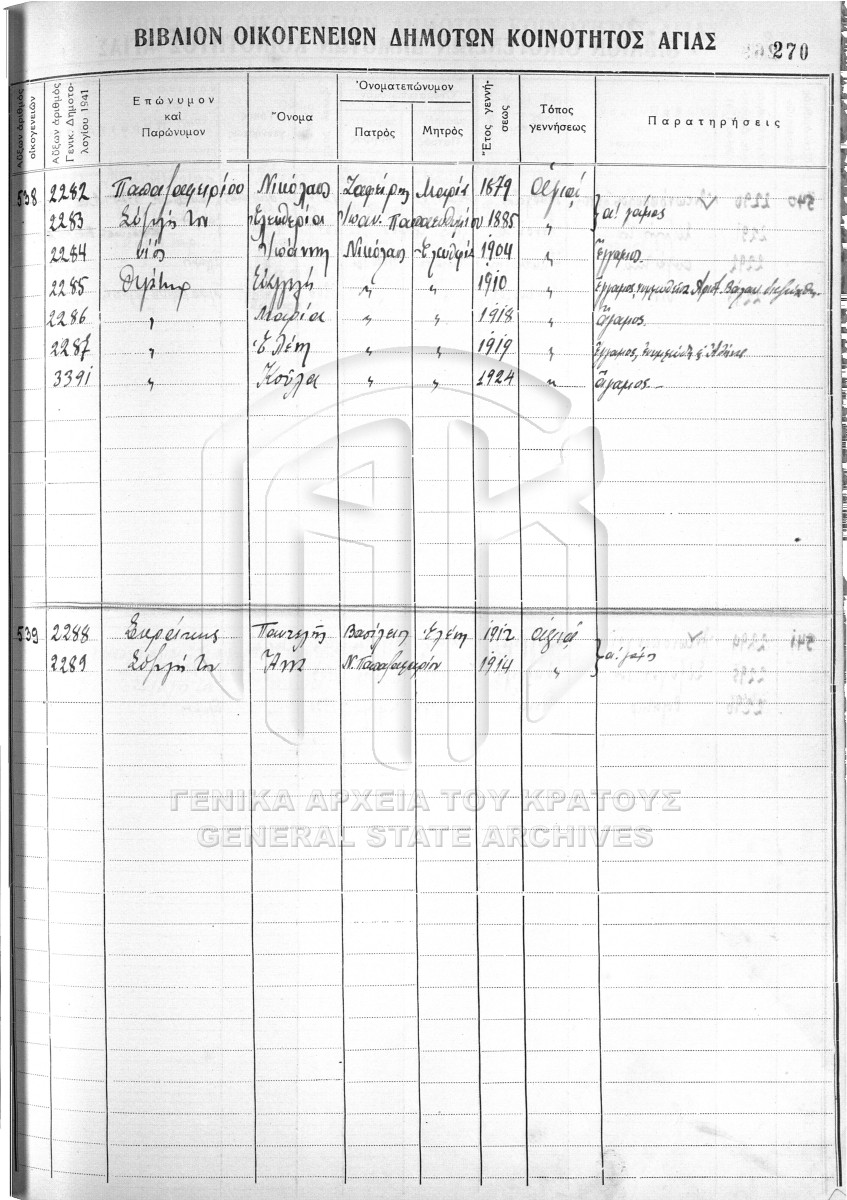 ΒΙΒΛΙΟΝ ΟΙΚΟΓΕΝΕΙΩΝ ΔΗΜΟΤΩΝ ΚΟΙΝΟΤΗΤΟΣ ΑΓΙΑΣ 270
Αὔξων ἀριθμὸς οἰκογενειῶν
Αὔξων ἀριθμὸς Γενικ. Δημοτολογίου 1941
Ἐπώνυμον καὶ Παρώνυμον
Ὄνομα
Ὀνοματεπώνυμον
Πατρὸς Μητρὸς
Ἔτος γεννήσεως
Τόπος γεννήσεως
Παρατηρήσεις
538 2282 Παπαζαφειρίου Νικόλαος Ζαφείρης Μαρία 1879 Ἁγιά
2283 Σύζυγός του Ἐλευθερία Ἰωαν. Παπαευθυμίου 1885 〃 α! γάμος
2284 υἱὸς Ἰωάννης Νικόλαος Ἐλευθερία 1904 〃 Ἔγγαμος
2285 Θυγάτηρ 〃 〃 1910 〃 Ἔγγαμος
2286 〃 Μαρία 〃 〃 1918 〃 ἄγαμος.
2287 〃 Ἑλένη 〃 〃 1919 〃 Ἔγγαμος
3391 〃 Κούλα 〃 〃 1924 〃 ἄγαμος.—
539 2288 Παντελῆς Βασίλειος Ἑλένη 1912 Ἁγιά
2289 Σύζυγός του Ν. Παπαζαφειρίου 1914 〃 α! γάμος
ΓΕΝΙΚΑ ΑΡΧΕΙΑ ΤΟΥ ΚΡΑΤΟΥΣ
GENERAL STATE ARCHIVES